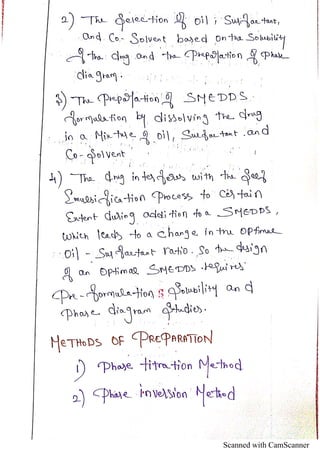 2) The Selection of oil; Surfactant,
and Co-Solvent based on the Solubility
of the drug and the Preparation of Phase
diagram.
3) The Preparation of SMEDDS
formulation by dissolving the drug
in a Mixture of oil, Surfactant and
Co-Solvent
4) The drug interferes with the Self
Emulsification Process to Certain
Extent during addition to a SMEDDS,
which leads to a change in the optimal
Oil - Surfactant ratio. So the design
of an optimal SMEDDS requires
Pre-formulation Solubility and
Phase diagram Studies.
METHODS OF PREPARATION
1) Phase titration Method
2) Phase inversion Method
Scanned with CamScanner